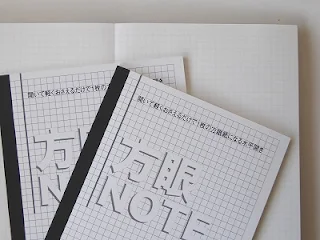 開いて軽くおさえるだけで1枚の
方
NO
開いて軽くおさえるだけで1枚の方眼紙になる水平開き
方眼
NOTE